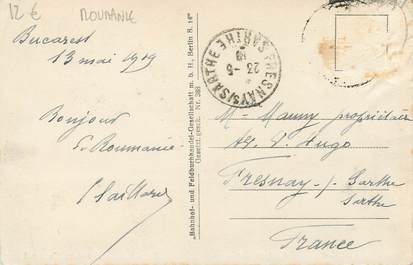 12 €
ROUMANIE
Bucarest
13 mai 1919
Bonjour
de Roumanie
"Bahnhof- und Feldbuchhandel-Gesellschaft m. b. H., Berlin S. 14"
Gesetzl. gesch. Nr. 388
FRESNAY S/SARTHE
SARTHE
23-5
19
Mr Mauny propriétaire
Av. V. Hugo
Fresnay s/ Sarthe
Sarthe
France